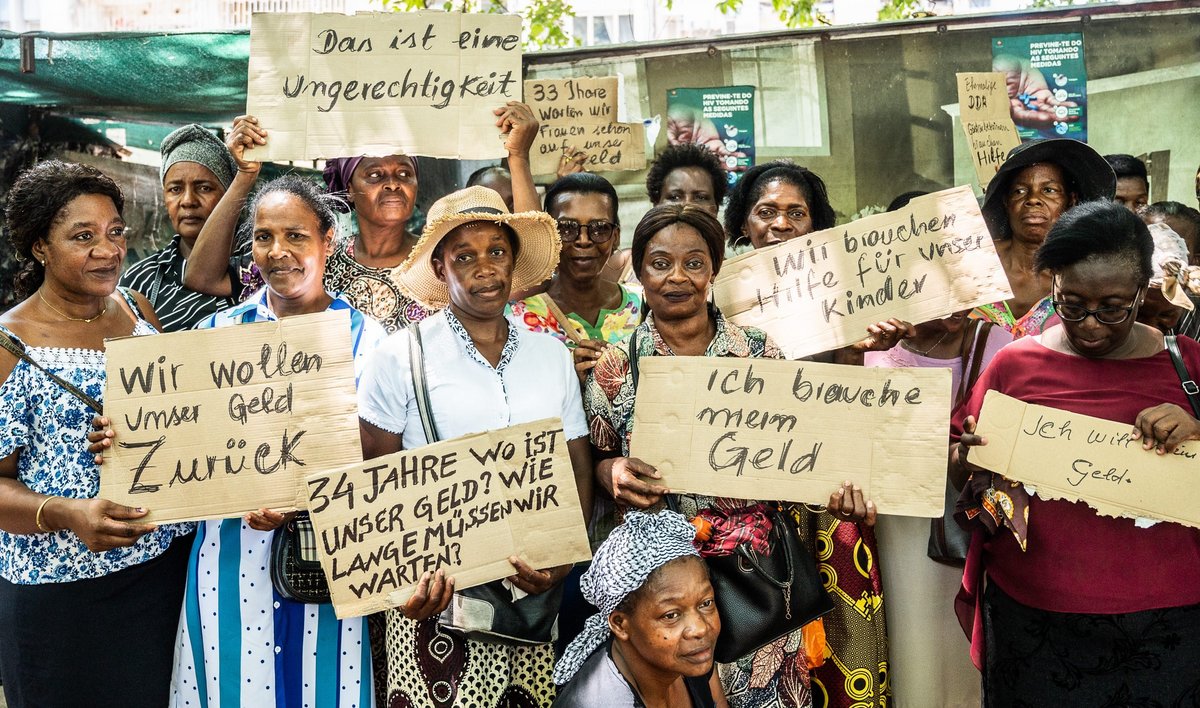 Das ist eine
Ungerechtigkeit
33 Jhare
Warten wir
Frauen schon
auf unser
Geld
PREVINE-TE DO
HIV TOMANDO
AS SEGUINTES
MEDIDAS
PREVINE-TE DO
HIV TOMANDO
AS SEGUINTES
MEDIDAS
Ehemalige
DDR
brauchen
Hilfe
Wir brauchen
Hilfe für unser
Kinder
Wir wollen
unser Geld
Zurück
Ich brauche
mein
Geld
Ich will
Geld.
34 JAHRE WO IST
UNSER GELD? WIE
LANGE MÜSSEN WIR
WARTEN?